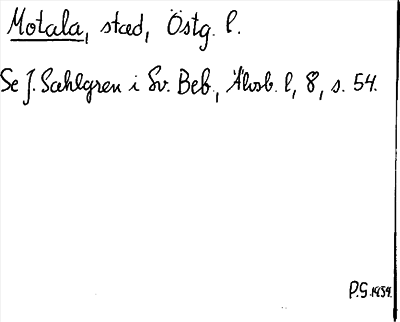 Motala, stad, Östg. l.
Se J. Sahlgren i Sv. Beb., Älvsb. l, 8, s. 54.
P.G. 1934.